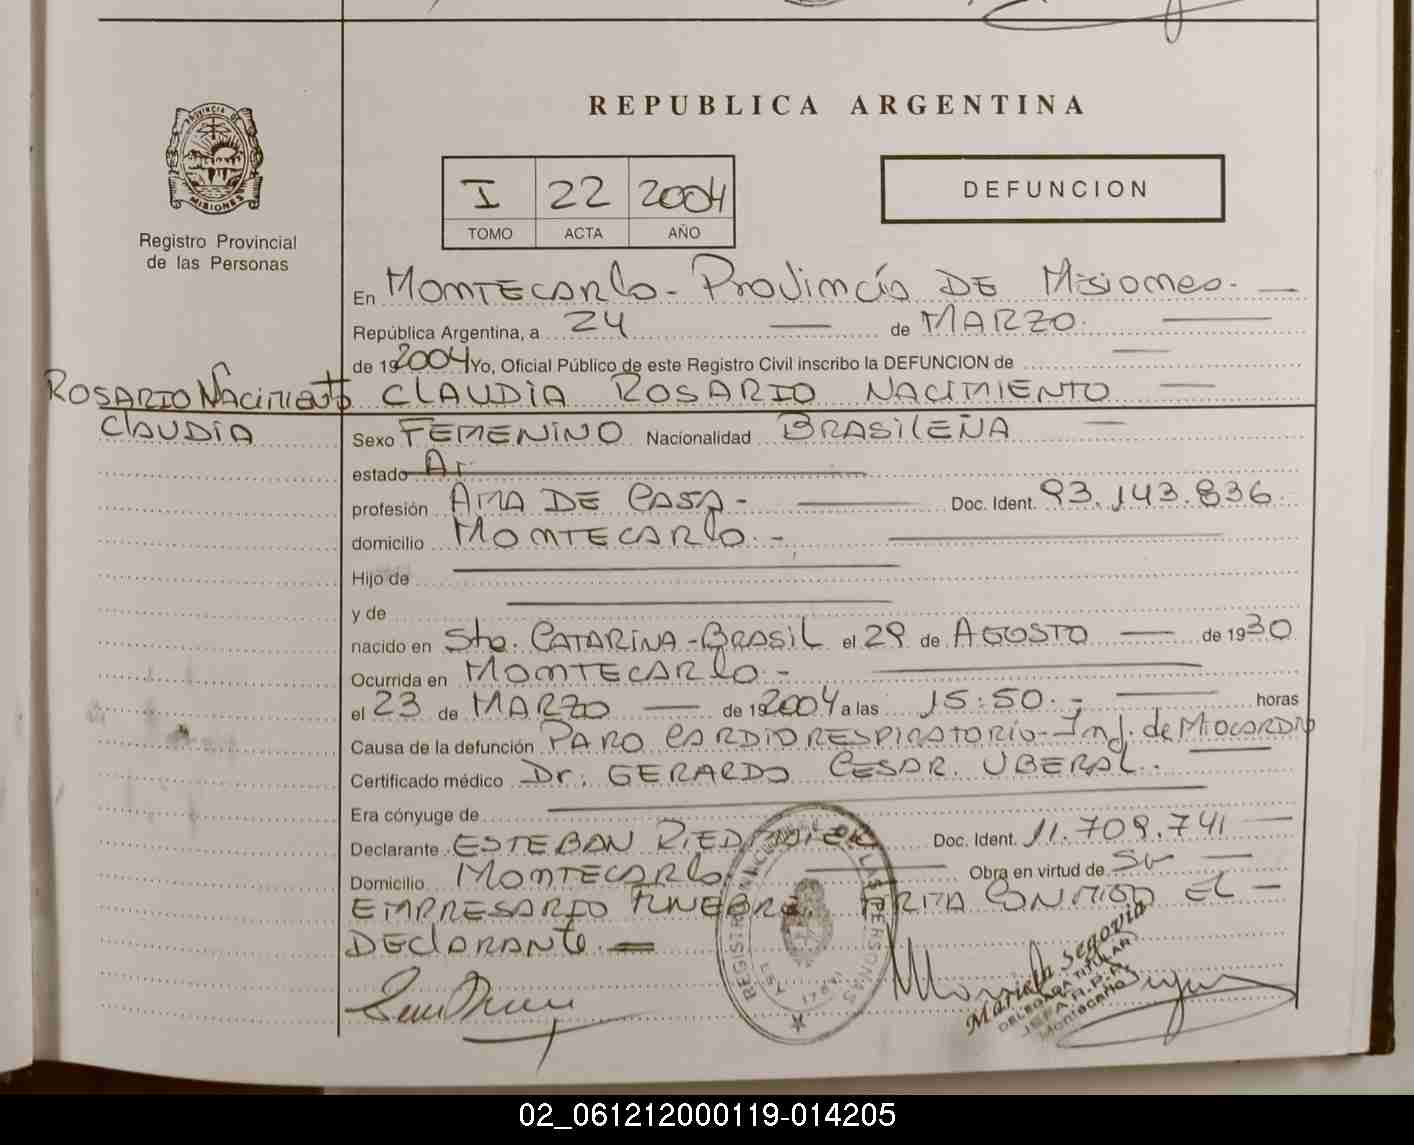 REPUBLICA ARGENTINA
PROVINCIA DE
MISIONES
Registro Provincial
de las Personas
I 22 2004
TOMO ACTA AÑO
DEFUNCION
En MONTECARLO - PROVINCIA DE MISIONES. —
República Argentina, a 24 — de MARZO. —
de 192004 Yo, Oficial Público de este Registro Civil inscribo la DEFUNCION de —
ROSARIO NACIMIENTO
CLAUDIA
CLAUDIA ROSARIO NACIMIENTO —
Sexo FEMENINO Nacionalidad BRASILEÑA —
estado
profesión AMA DE CASA - — Doc. Ident. 93.143.836.
domicilio MONTECARLO. - —
Hijo de —
y de —
nacido en Sta. CATARINA - BRASIL el 29 de AGOSTO — de 1930
Ocurrida en MONTECARLO - —
el 23 de MARZO — de 192004 a las 15:50. - — horas
Causa de la defunción PARO CARDIORESPIRATORIO - Inf. de MIOCARDIO
Certificado médico Dr. GERARDO CESAR. UBERAL. —
Era cónyuge de —
Declarante ESTEBAN Doc. Ident. 11.709.741 —
Domicilio MONTECARLO — Obra en virtud de Su —
EMPRESARIO FUNEBRE. FIRMA CONMIGO EL —
DECLARANTE. —
LAS PERSONAS
Mariela Segovia
DELEGADA TITULAR
Montecarlo
02_061212000119-014205